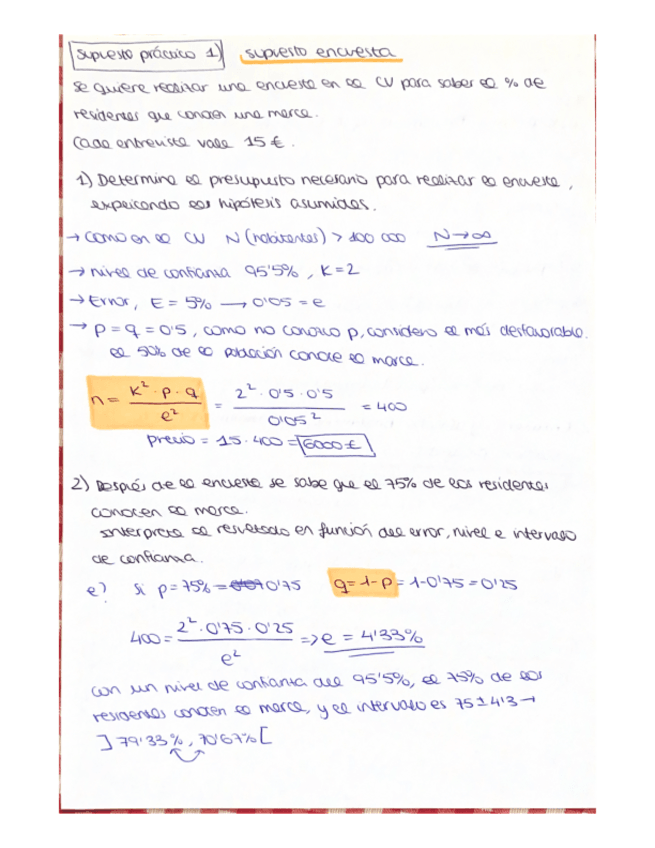 Supuesto práctico 1) supuesto encuesta
Se quiere realizar una encuesta en la CV para saber el % de
residentes que conocen una marca.
Cada entrevista vale 15 €.
1) Determina el presupuesto necesario para realizar la encuesta,
explicando las hipótesis asumidas.
→ Como en la CV N (habitantes) > 100 000 N → ∞
→ nivel de confianza 95'5%, K=2
→ Error, E = 5% → 0'05 = e
→ p = q = 0'5, como no conozco p, considero el más desfavorable.
el 50% de la población conoce la marca.
n = K² · p · q / e² = 2² · 0'5 · 0'5 / 0'05² = 400
precio = 15 · 400 = 6000 €
2) Después de la encuesta se sabe que el 75% de los residentes
conocen la marca.
Interpreta el resultado en función del error, nivel e intervalo
de confianza.
e? Si p = 75% = 0'75 q = 1-p = 1-0'75 = 0'25
400 = 2² · 0'75 · 0'25 / e² => e = 4'33%
con un nivel de confianza del 95'5%, el 75% de los
residentes conocen la marca, y el intervalo es 75 ± 4'3 →
]79'33%, 70'67%[